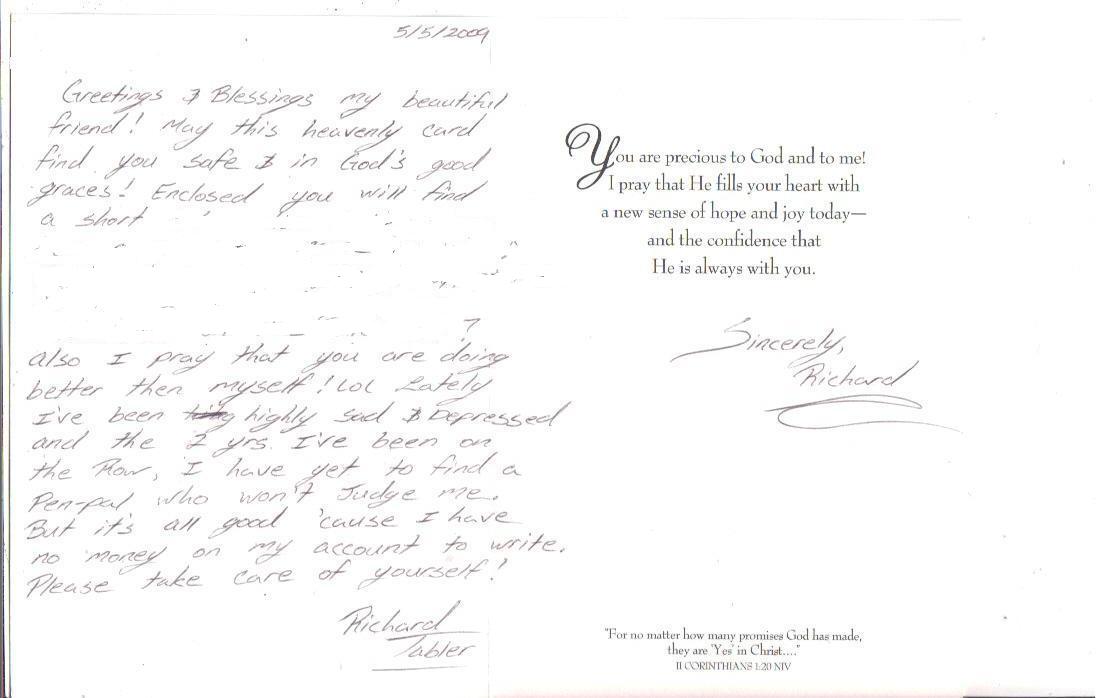 5/5/2009
Greetings & Blessings my beautiful
friend! May this heavenly card
find you safe & in God's good
graces! Enclosed you will find
a short
also I pray that you are doing
better then myself! Lol Lately
I've been highly sad & Depressed
and the 2 yrs. I've been on
the Row, I have yet to find a
Pen-pal who won't Judge me.
But it's all good 'cause I have
no money on my account to write.
Please take care of yourself!
Richard
Tabler
You are precious to God and to me!
I pray that He fills your heart with
a new sense of hope and joy today—
and the confidence that
He is always with you.
Sincerely,
Richard
"For no matter how many promises God has made,
they are 'Yes' in Christ...."
II CORINTHIANS 1:20 NIV